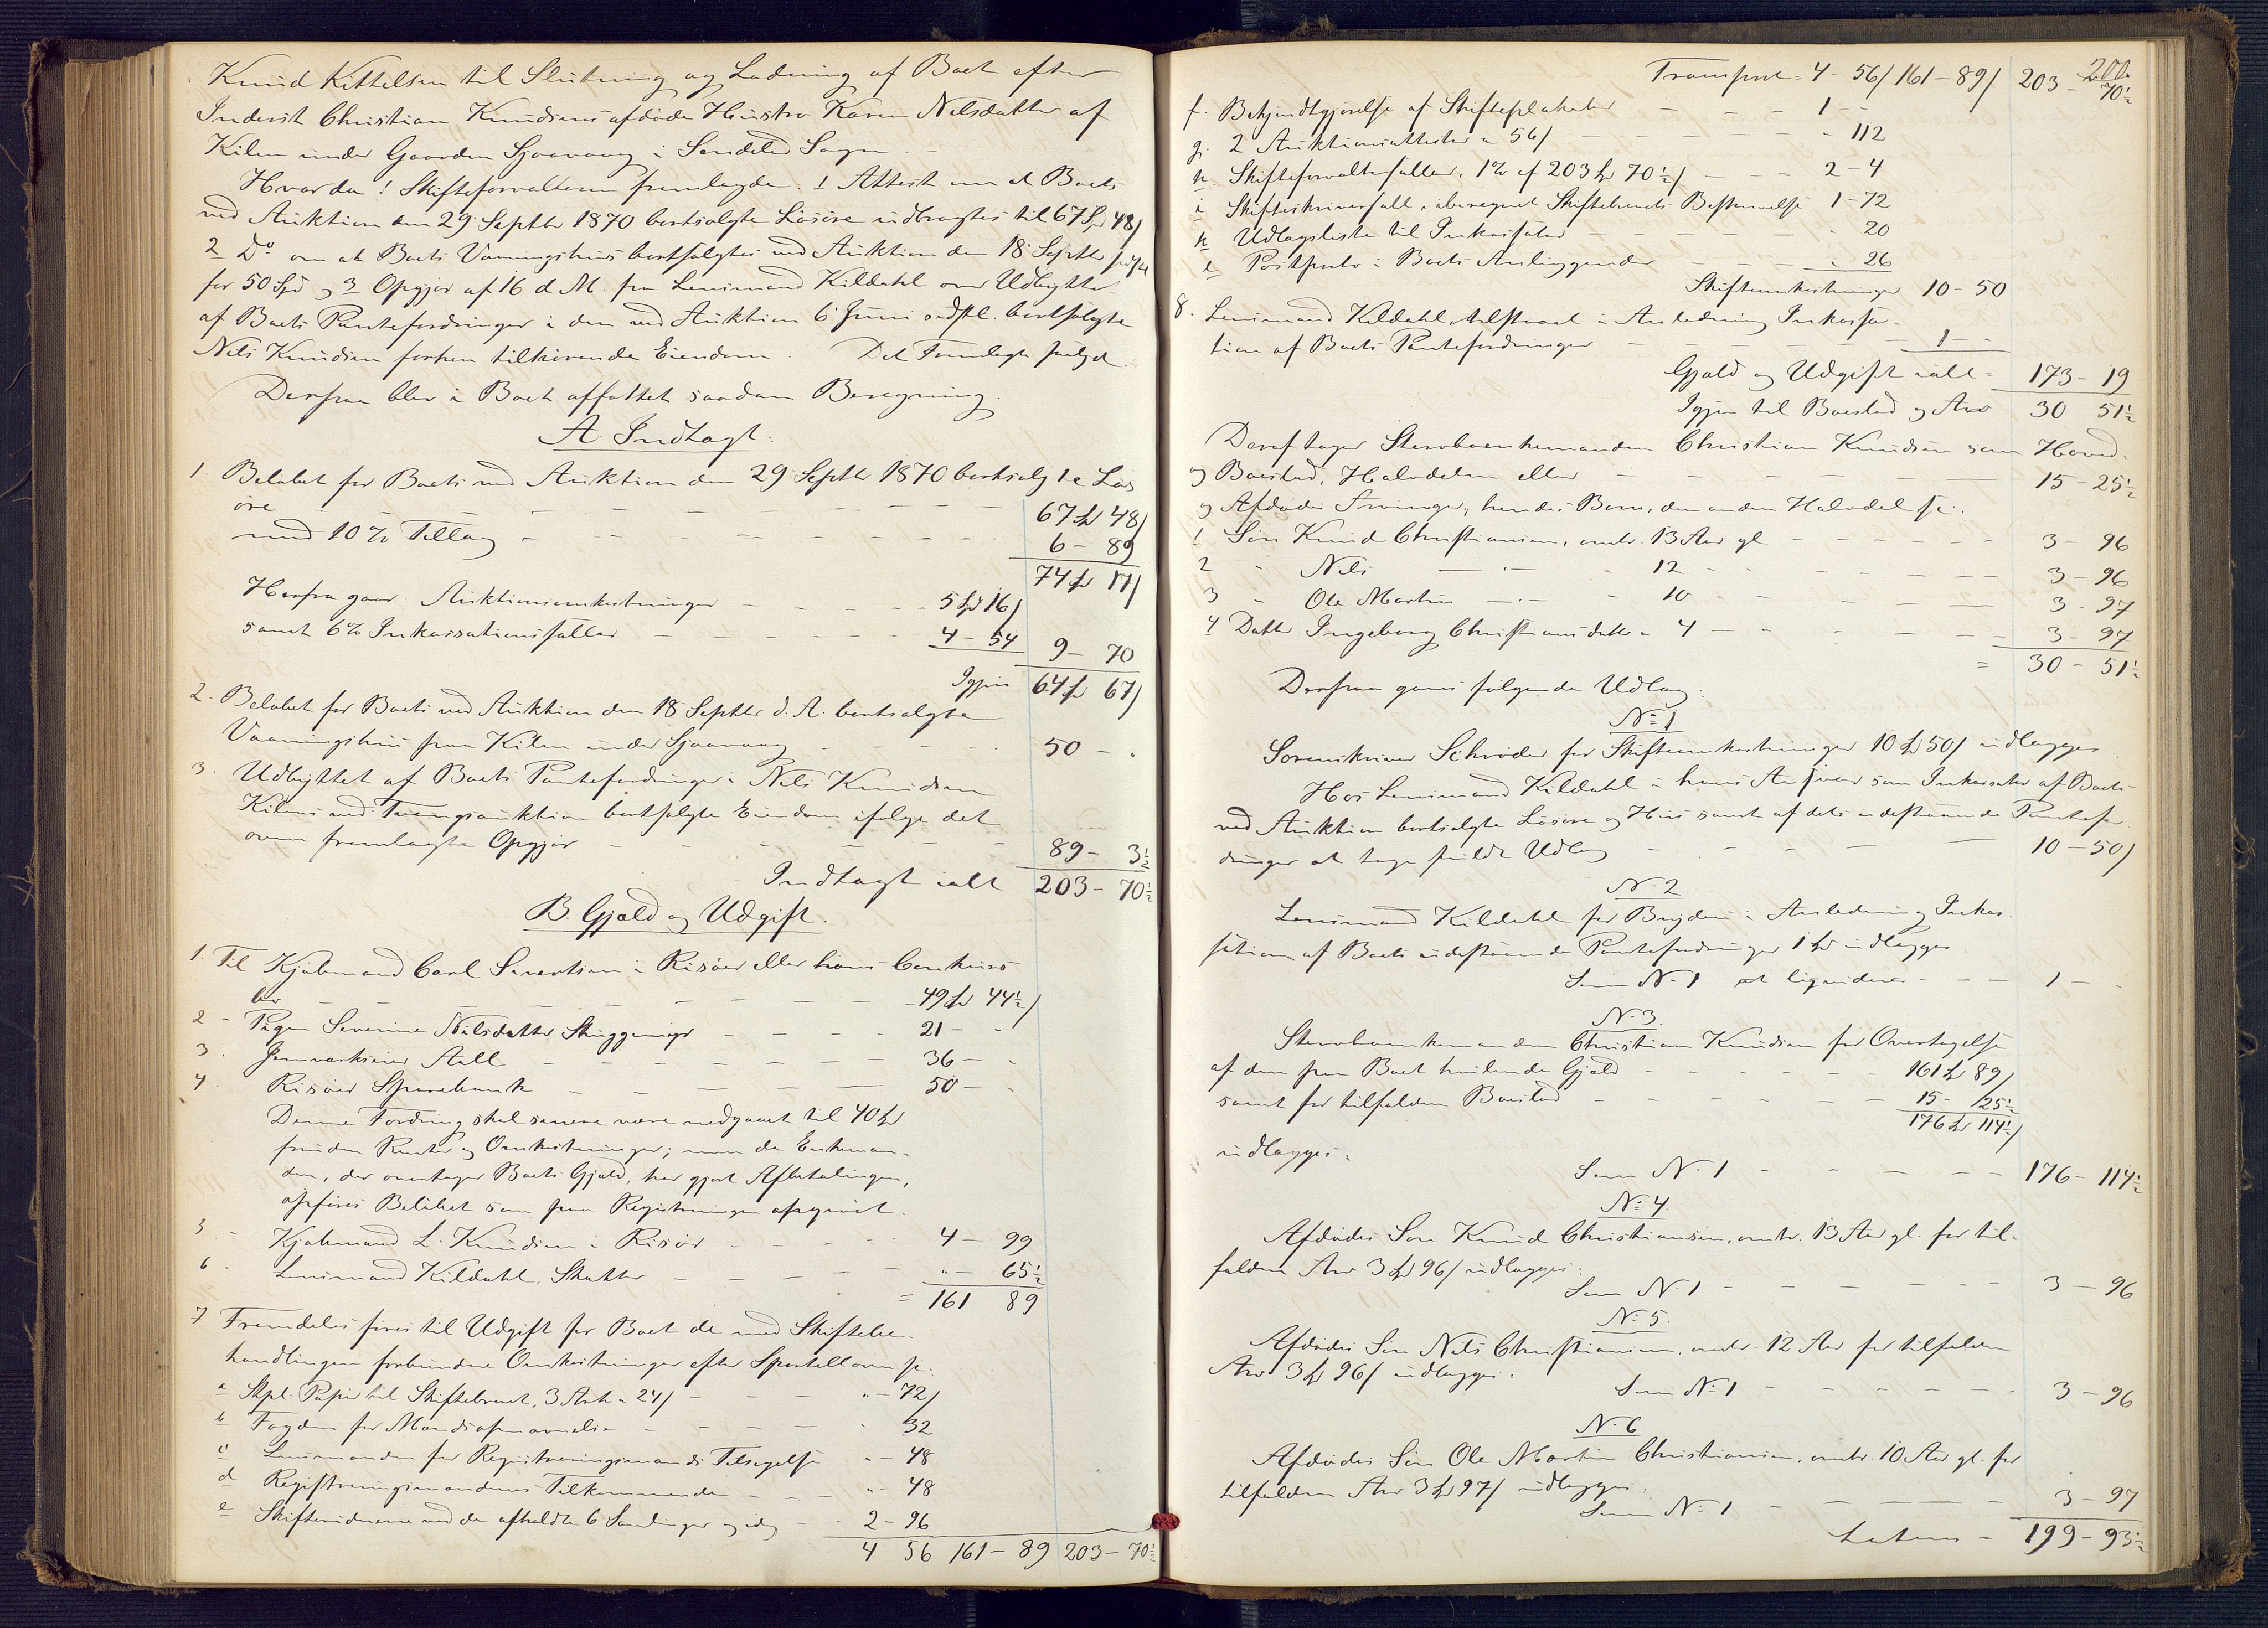 Knud Kittelsen til Slutning og Ladning af Boet efter
Inderst Christian Knudsens afdøde Hustro Karen Nilsdatter af
Kilen under Gaarden Sjaavaag i Søndeled Sogn.
Hvorda! Skifteforvalteren fremlagde: 1 Attest om at Boets
ved Auktion den 29 Septbr 1870 bortsolgte Løsøre udbragtes til 67 Spd 48/
2 Do om at Boets Vaaningshus bortsolgtes ved Auktion den 18 Septbr
for 50 Spd og 3 Opgjør af 16 d. M. fra Lensmand Kildahl over Udbyttet
af Boets Pantefordringer i den ved Auktion 6 Juni bortsolgte
Nils Knudsen forhen tilhørende Eiendom. Det Fremlagte følger.
Derpaa blev i Boet affattet saadan Beregning.
A Indtægt:
1. Beløbet for Boets ved Auktion den 29 Septbr 1870 bortsolgte Løs
øre - - - 67 Spd 48/
med 10 % Tillæg - - - 6 - 89
74 Spd 17/
Herfra gaar: Auktionsomkostninger - - - 5 Spd 16/
samt 6% Inkassationssallær - - - 4 - 54 9 - 70
Igjen 64 Spd 67/
2. Beløbet for Boets ved Auktion den 18 Septbr d. A. bortsolgte
Vaaningshus paa Kilen under Sjaavaag - - - 50 - "
3. Udbyttet af Boets Pantefordringer i Nils Knudsen
Kilens ved Tvangsauktion bortsolgte Eiendom ifølge det
oven fremlagte Opgjør - - - 89 - 3½
Indtægt ialt 203 - 70½
B. Gjæld og Udgift.
1. Til Kjøbmand Carl Sivertsen i Risøer eller hans Conkurs
bo - - - 49 Spd 44½/
2 - Pigen Severine Nilsdatter Skuggemyr - - - 21 - "
3. Jernværkseier Aall - - - 36 - "
4. Risøer Sparebank - - - 50 - "
Denne Fordring skal senere være nedgaaet til 40 Spd
foruden Renter og Omkostninger; men da Enkeman-
den, der overtager Boets Gjæld, har gjort Afbetalingen,
opføres Beløbet som paa Registreringen opgivet.
5 - Kjøbmand L. Knudsen i Risør - - - 4 - 99
6 - Lensmand Kildahl, Skatter - - - " - 65½
= 161 89
7 Fremdeles føres til Udgift for Boet de med Skiftebe-
handlingen forbundne Omkostninger efter Sportelloven s:
a Stpl. Papir til Skiftebrevet, 3 Ark a 24/ - - - " - 72/
b Fogden for Mændsopnævnelse - - - 32
c Lensmanden for Registreringsmænds Tilsigelse " - 48
d Registreringsmændenes Tilkommende - - - " - 48
e Skiftevidnerne ved de afholdte 6 Samlinger og idag - 2 - 96
4 56 161 - 89 203 - 70½
Transport = 4 - 56/ 161 - 89/ 203 - 70½
f. Bekjendtgjørelse af Skifteplakater - - - 1 - -
g. 2 Auktionsattester a 56/ - - - " 112
h. Skifteforvaltersallær, 1% af 203 Spd 70½/ - - - 2 - 4
i Skifteskriversall, iberegnet Skiftebrevets Beskrivelse 1 - 72
k Udlægsliste til Inkassator - - - " 20
l Postporto i Boets Anliggender - - - " 26
Skifteomkostninger 10 - 50
8. Lensmand Kildahl, tilstaaet i Anledning Inkassa-
tion af Boets Pantefordringer - - - 1 - -
Gjæld og Udgift ialt = 173 - 19
Igjen til Boeslod og Arv 30 51½
Deraf tager Stervboenkemanden Christian Knudsen som Hoved-
og Boeslod, Halvdelen eller - - - 15 - 25½
og Afdødes Arvinger, hendes Børn, den anden Halvdel s:
1 Søn Knud Christiansen, omtr. 13 Aar gl - - - 3 - 96
2 " Nils —"— " 12 - - - 3 - 96
3 " Ole Martin —"— " 10 - - - 3 - 97
4 Datter Ingeborg Christiansdatter " 4 - - - 3 - 97
= 30 - 51½
Derpaa gjøres følgende Udlæg:
No 1
Sorenskriver Schrøder for Skifteomkostninger 10 Spd 50/ udlægges
Hos Lensmand Kildahl i hans Ansvar som Inkassator af Boets
ved Auktion bortsolgte Løsøre og Hus samt af dets indestaaende Pantefor
dringer at tage fuldt Udlæg - - - 10 - 50/
No 2
Lensmand Kildahl for Bryderi i Anledning Inkas-
sation af Boets indestaaende Pantefordringer 1 Spd udlægges
Som No 1 at liqvidere - - - 1 - -
No 3.
Stervboenkemanden Christian Knudsen for Overtagelse
af den paa Boet hvilende Gjæld - - - 161 Spd 89/
samt for tilfalden Boeslod - - - 15 - 25½
176 Spd 114½/
udlægges:
Som No 1 - - - 176 - 114½
No 4.
Afdødes Søn Knud Christiansen, omtr. 13 Aar gl. for til-
falden Arv 3 Spd 96/ udlægges:
Som No 1 - - - 3 - 96
No 5.
Afdødes Søn Nils Christiansen, omtr. 12 Aar for tilfalden
Arv 3 Spd 96/ udlægges:
Som No 1 - - - 3 - 96
No 6
Afdødes Søn Ole Martin Christiansen, omtr. 10 Aar gl. for
tilfalden Arv 3 Spd 97/ udlægges:
Som No 1 - - - 3 - 97
Latus = 199 - 93½